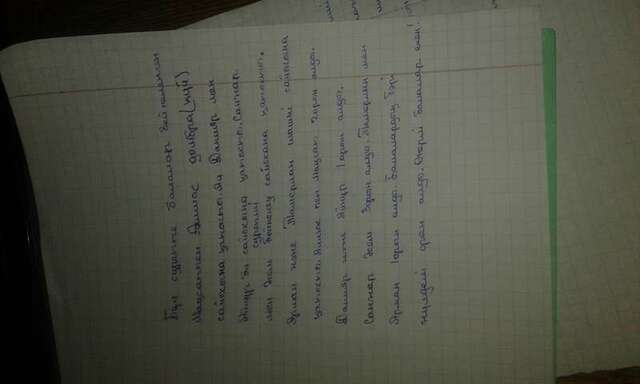 Бұл суретте балалар бейнеленген
Мақсатпен Алмас домбра(күй)
сайысына қатысты. Ал Данияр мен
Айнұр ән сайысына қатысты. Санжар
мен Әсем
суретші
сайысына қатысты.
Арман және Тамерлан шашкі сайысына
қатысты. Алмас пен Мақсат 2орын алды.
Данияр және Айнұр 1орын алды.
Санжар Әсем 3орын алды. Тамерлан мен
Арман 1орын алды. Балалардың бәрі
жүлделі орын алды. Өнерлі балалар екен!